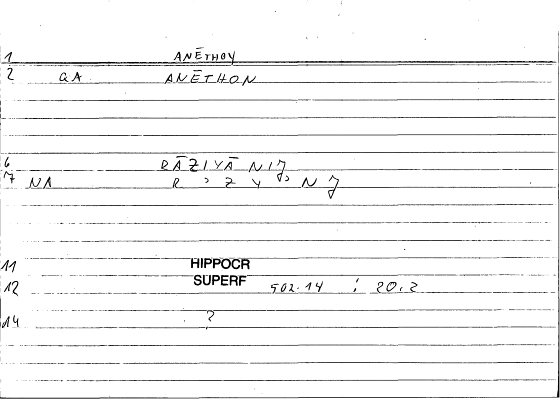 1 ANĒTHOY
2 GA ANĒTHON
6 RĀZIYĀNIJ
7 NA R ɔ Z Y ɔ N J
11 HIPPOCR
12 SUPERF 502.14 : 20.2
14 ?